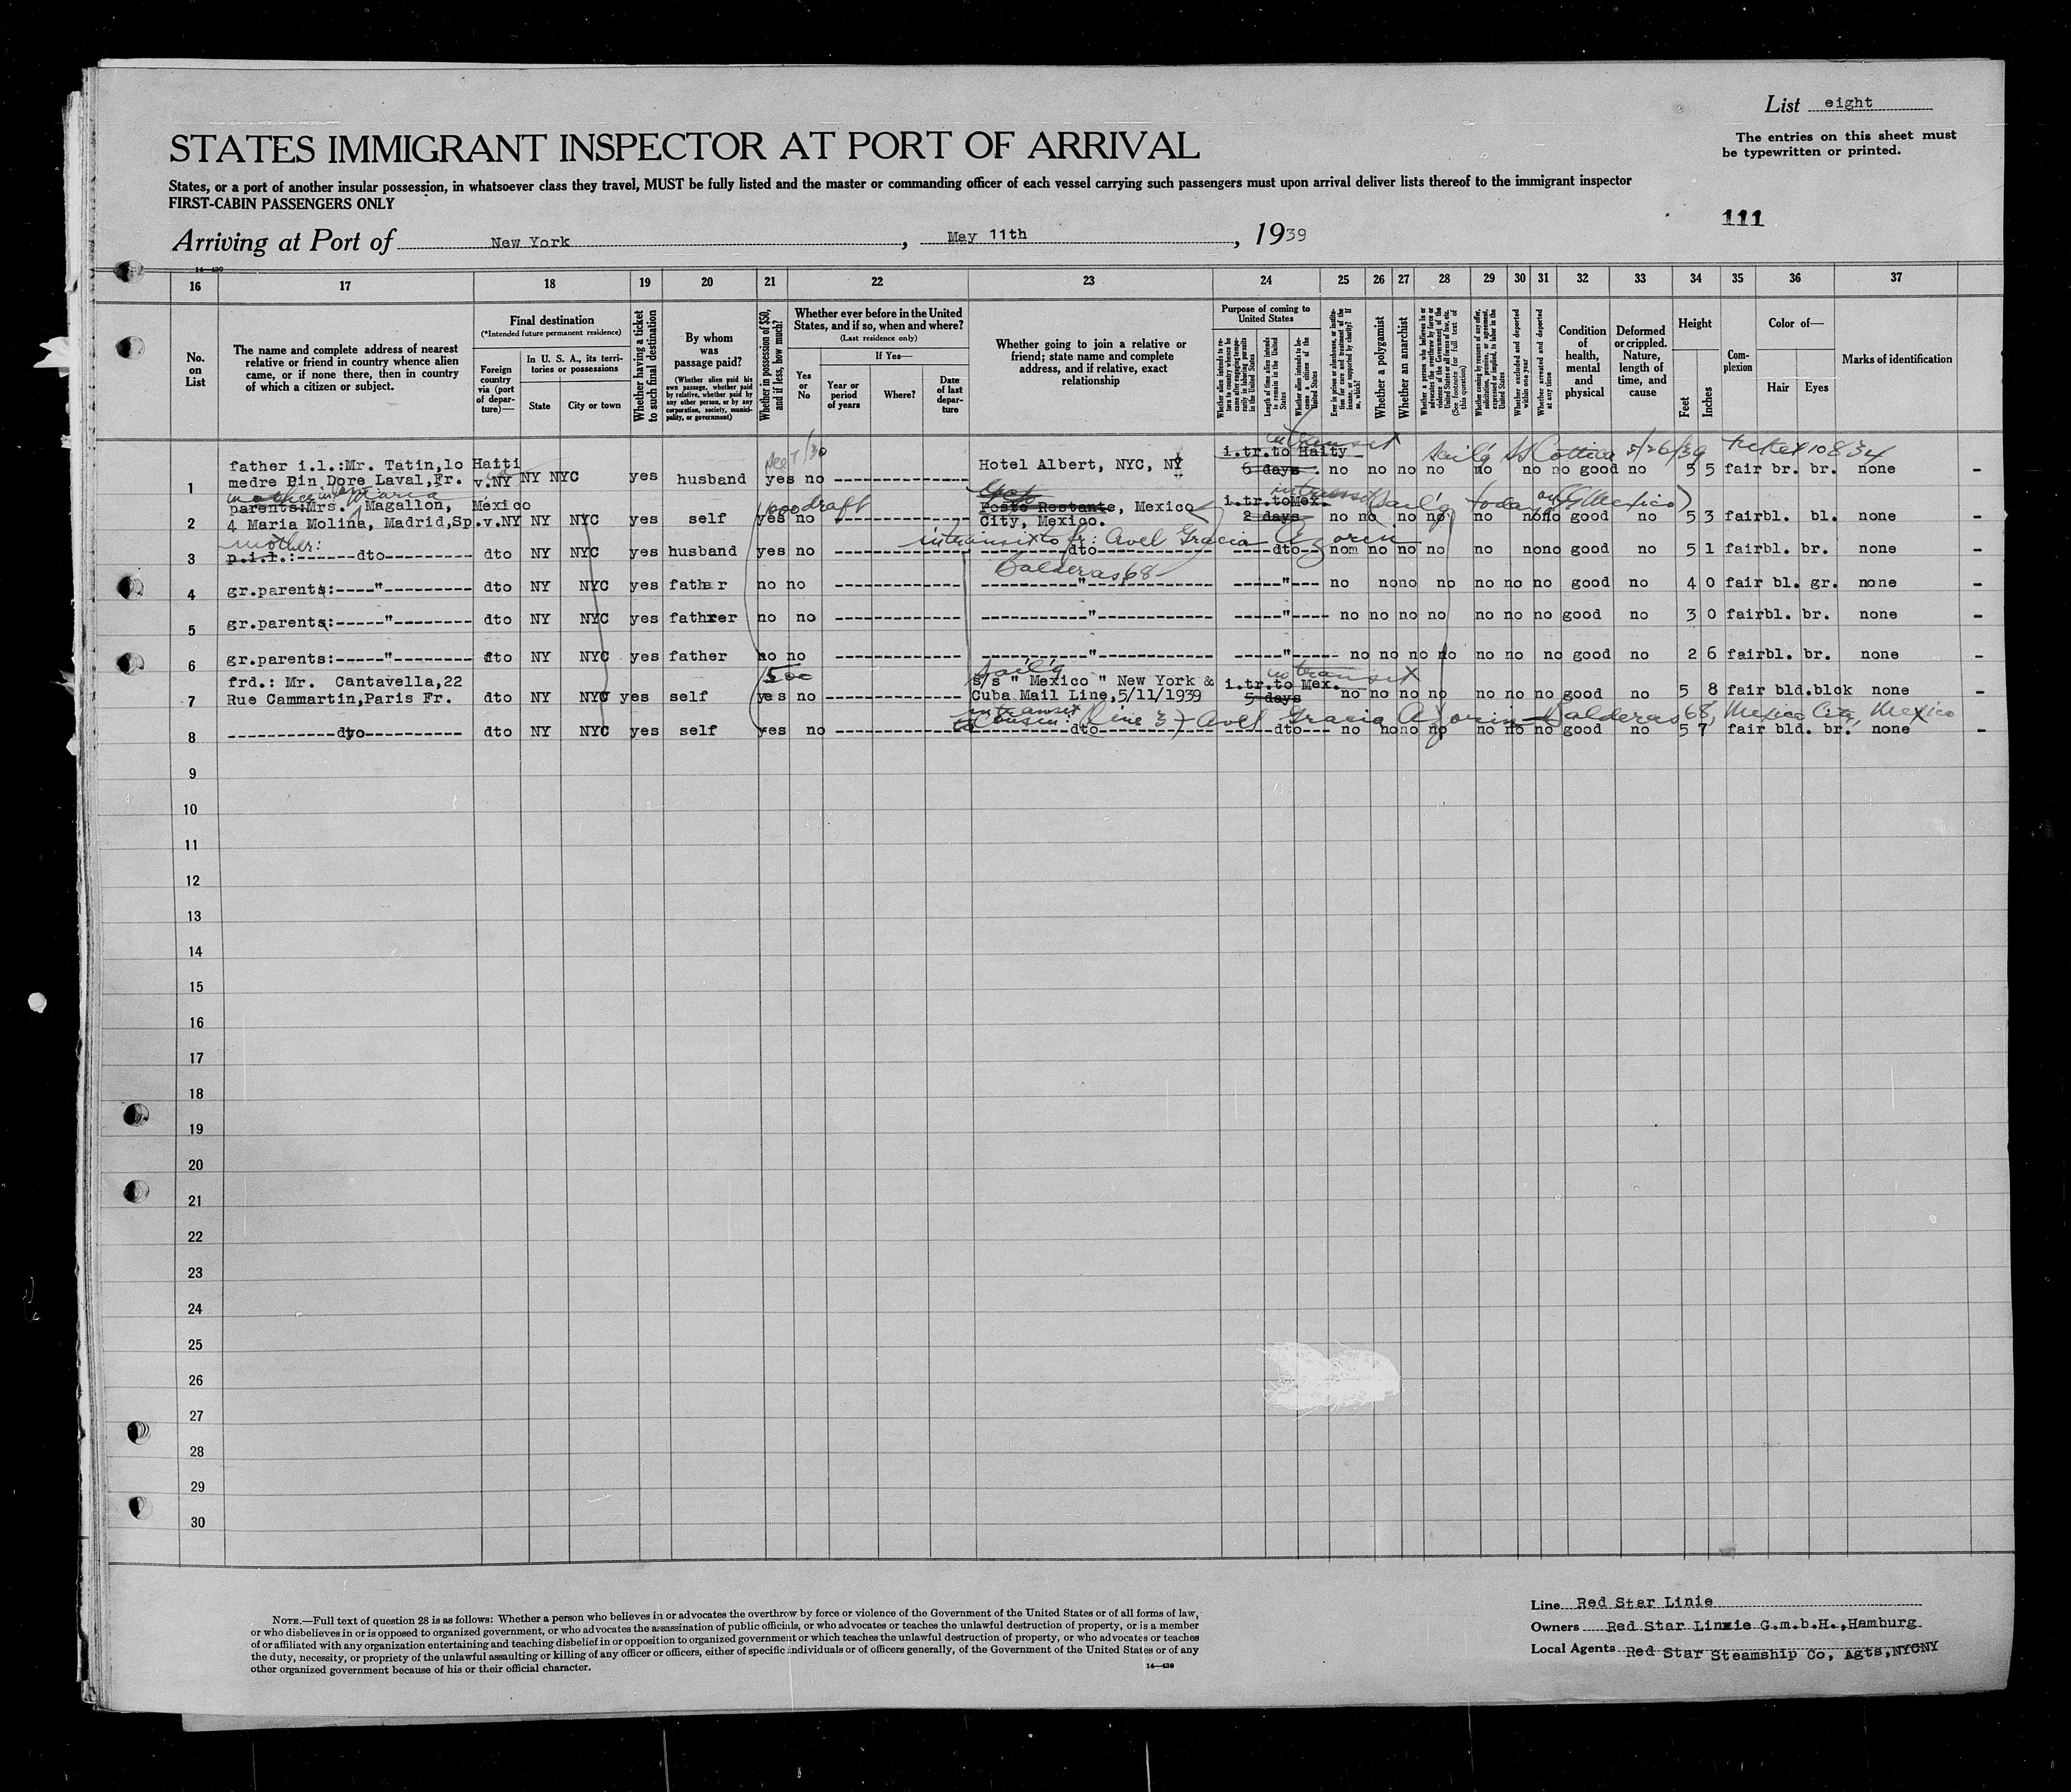 List eight
The entries on this sheet must
be typewritten or printed.
STATES IMMIGRANT INSPECTOR AT PORT OF ARRIVAL
States, or a port of another insular possession, in whatsoever class they travel, MUST be fully listed and the master or commanding officer of each vessel carrying such passengers must upon arrival deliver lists thereof to the immigrant inspector
FIRST-CABIN PASSENGERS ONLY
111
Arriving at Port of New York, May 11th, 1939
14—430
16 17 18 19 20 21 22 23 24 25 26 27 28 29 30 31 32 33 34 35 36 37
No. on List
The name and complete address of nearest
relative or friend in country whence alien
came, or if none there, then in country
of which a citizen or subject.
Final destination
(*Intended future permanent residence)
Foreign country via (port of departure)—
In U. S. A., its territories or possessions
State
City or town
Whether having a ticket to such final destination
By whom was passage paid?
(Whether alien paid his own passage, whether paid by relative, whether paid by any other person, or by any corporation, society, municipality, or government)
Whether in possession of $50, and if less, how much?
Whether ever before in the United
States, and if so, when and where?
(Last residence only)
Yes or No
If Yes—
Year or period of years
Where?
Date of last departure
Whether going to join a relative or
friend; state name and complete
address, and if relative, exact
relationship
Purpose of coming to United States
Whether alien intends to return to country whence he came after engaging temporarily in laboring pursuits in the United States
Length of time alien intends to remain in the United States
Whether alien intends to become a citizen of the United States
Ever in prison or almshouse, or institution for care and treatment of the insane, or supported by charity? If so, which?
Whether a polygamist
Whether an anarchist
Whether a person who believes in or advocates the overthrow by force or violence of the Government of the United States or all forms of law, etc. (See footnote for full text of this question)
Whether coming by reasons of any offer, solicitation, promise, or agreement, expressed or implied, to labor in the United States
Whether excluded and deported within one year
Whether arrested and deported at any time
Condition of health, mental and physical
Deformed or crippled. Nature, length of time, and cause
Height
Feet
Inches
Complexion
Color of—
Hair
Eyes
Marks of identification
in transit
sail'g SS Cottica 5/26/39 ticket 10834
1 father i.l.:Mr. Tatin,lo Haiti
medre Bin Dore Laval,Fr. v.NY NY NYC yes husband yes no Hotel Albert, NYC, NY i.tr.to Haity 6 days no no no no no no no good no 5 5 fair br. br. none -
mother in law Maria
1000 draft
in transit (sail'g today on SS Mexico)
2 parents:Mrs. Magallon, Mexico
4 Maria Molina, Madrid,Sp.v.NY NY NYC yes self yes no Poste Restante, Mexico City, Mexico. i.tr.toMex. 2 days no no no no no no no good no 5 3 fair bl. bl. none
mother:
in transit to fr: Avel Gracia Azorin
3 p.i.l.:-------dto--------- dto NY NYC yes husband yes no dto dto nom no no no no nono good no 5 1 fair bl. br. none -
Balderas 68
4 gr.parents:----"--------- dto NY NYC yes father no no " " no nono no no no no good no 4 0 fair bl. gr. none -
5 gr.parents:-----"-------- dto NY NYC yes fathxer no no " " no no no no no no no good no 3 0 fair bl. br. none -
6 gr.parents:-----"--------- dto NY NYC yes father no no " " no no no no no no no good no 2 6 fair bl. br. none -
500
sail'g
in transit
7 frd.: Mr. Cantavella,22
Rue Cammartin,Paris Fr. dto NY NYC yes self yes no s/s " Mexico " New York & Cuba Mail Line,5/11/1939 i.tr.to Mex. 5 days no no no no no no no good no 5 8 fair bld.blck none -
in transit
to Cousin: (line 3) Avel Gracia Azorin - Balderas 68, Mexico City, Mexico
8 -----------dyo---------- dto NY NYC yes self yes no dto dto no no no no no no no good no 5 7 fair bld. br. none -
9
10
11
12
13
14
15
16
17
18
19
20
21
22
23
24
25
26
27
28
29
30
NOTE.—Full text of question 28 is as follows: Whether a person who believes in or advocates the overthrow by force or violence of the Government of the United States or of all forms of law,
or who disbelieves in or is opposed to organized government, or who advocates the assassination of public officials, or who advocates or teaches the unlawful destruction of property, or is a member
of or affiliated with any organization entertaining and teaching disbelief in or opposition to organized government or which teaches the unlawful destruction of property, or who advocates or teaches
the duty, necessity, or propriety of the unlawful assaulting or killing of any officer or officers, either of specific individuals or of officers generally, of the Government of the United States or of any
other organized government because of his or their official character.
14—430
Line Red Star Linie
Owners Red Star Linxie G.m.b.H.,Hamburg
Local Agents Red Star Steamship Co, Agts,NYCNY